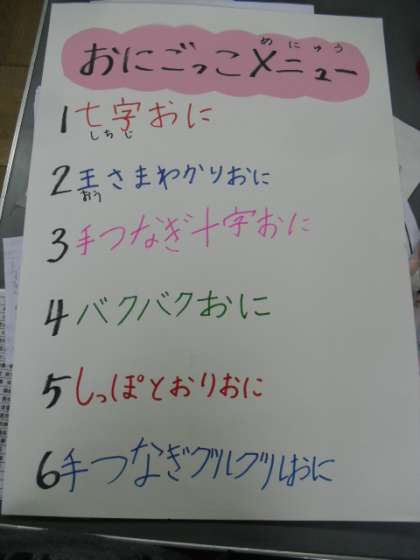 めにゅう
おにごっこメニュー
1 七字おに
しちじ
2 王さまわかりおに
おう
3 手つなぎ十字おに
4 バクバクおに
5 しっぽとおりおに
6 手つなぎグルグルおに